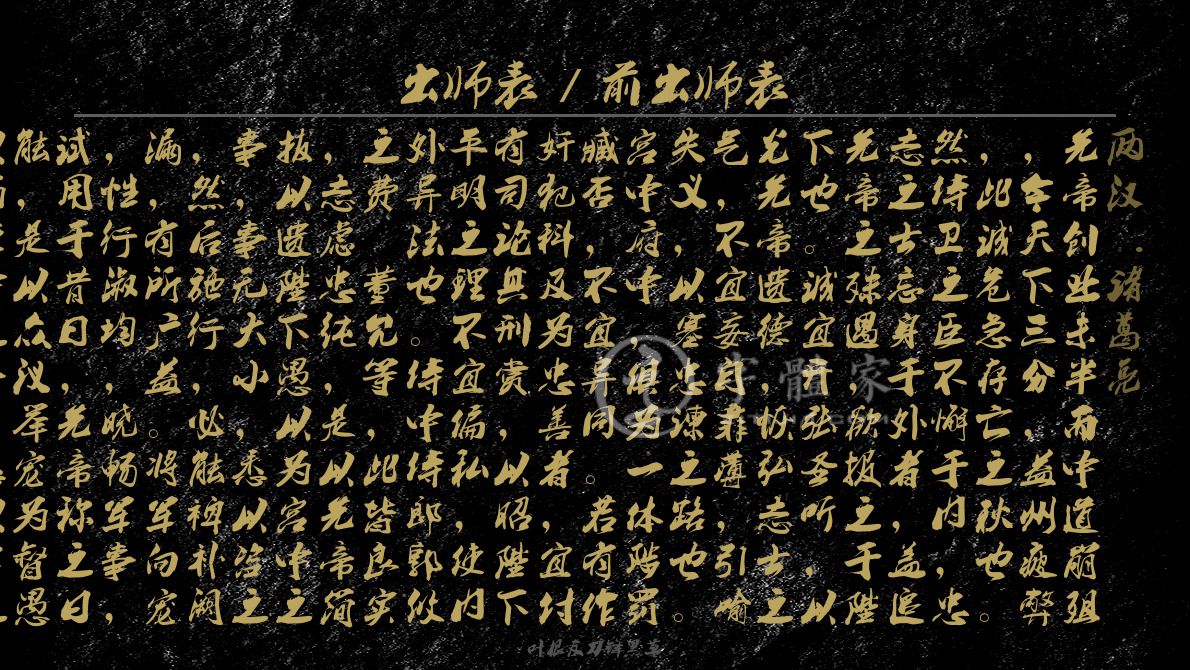 出师表 / 前出师表
两汉 . 诸葛亮
先帝创业未半而中道崩殂
，今天下三分，益州疲弊
，此诚危急存亡之秋也。
然待卫之臣不懈于内，忠
志之士忘身于外者，盖追
先帝之殊遇，欲报之于陛
下也。诚宜开张圣听，以
光先帝遗德，恢弘志士之
气，不宜妄自菲薄，引喻
失义，以塞忠谏之路也。
宫中府中，俱为一体陟罚
臧否，不宜异同。若有作
奸犯科及为忠善者，宜付
有司论具刑赏，以昭陛下
平明之理不宜偏私，使内
外异法也。侍中侍郎郭攸
之费 董允等，此皆良实
，志虑忠纯，是以先帝简
拔以遗陛下。愚以为宫中之
事，事无大小，悉以咨之
，然后施行，必能裨补阙
漏，有所广益。将军向宠
，性行淑均，晓畅军事，
试用于昔日，先帝称之日
能，是以众议举宠为督愚
字體家
叶根友刀锋黑草